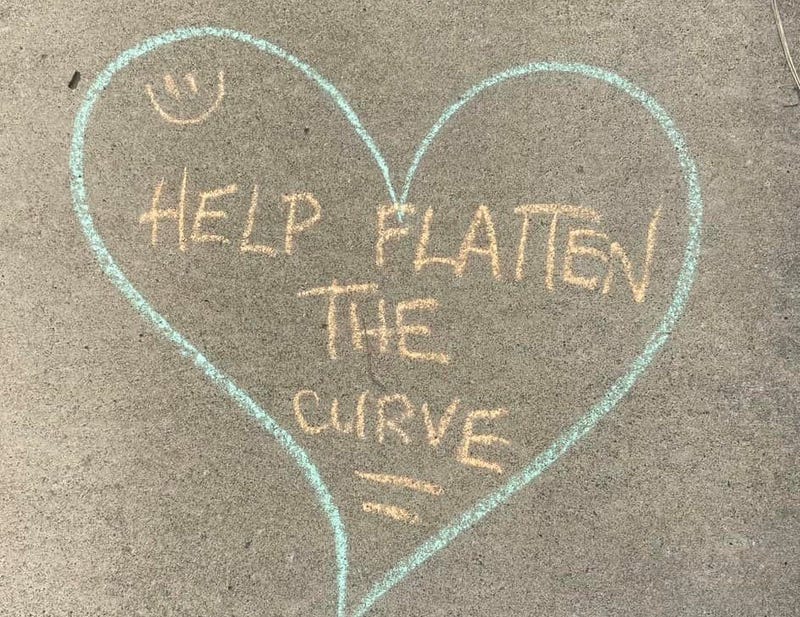 HELP FLATTEN
THE
CURVE